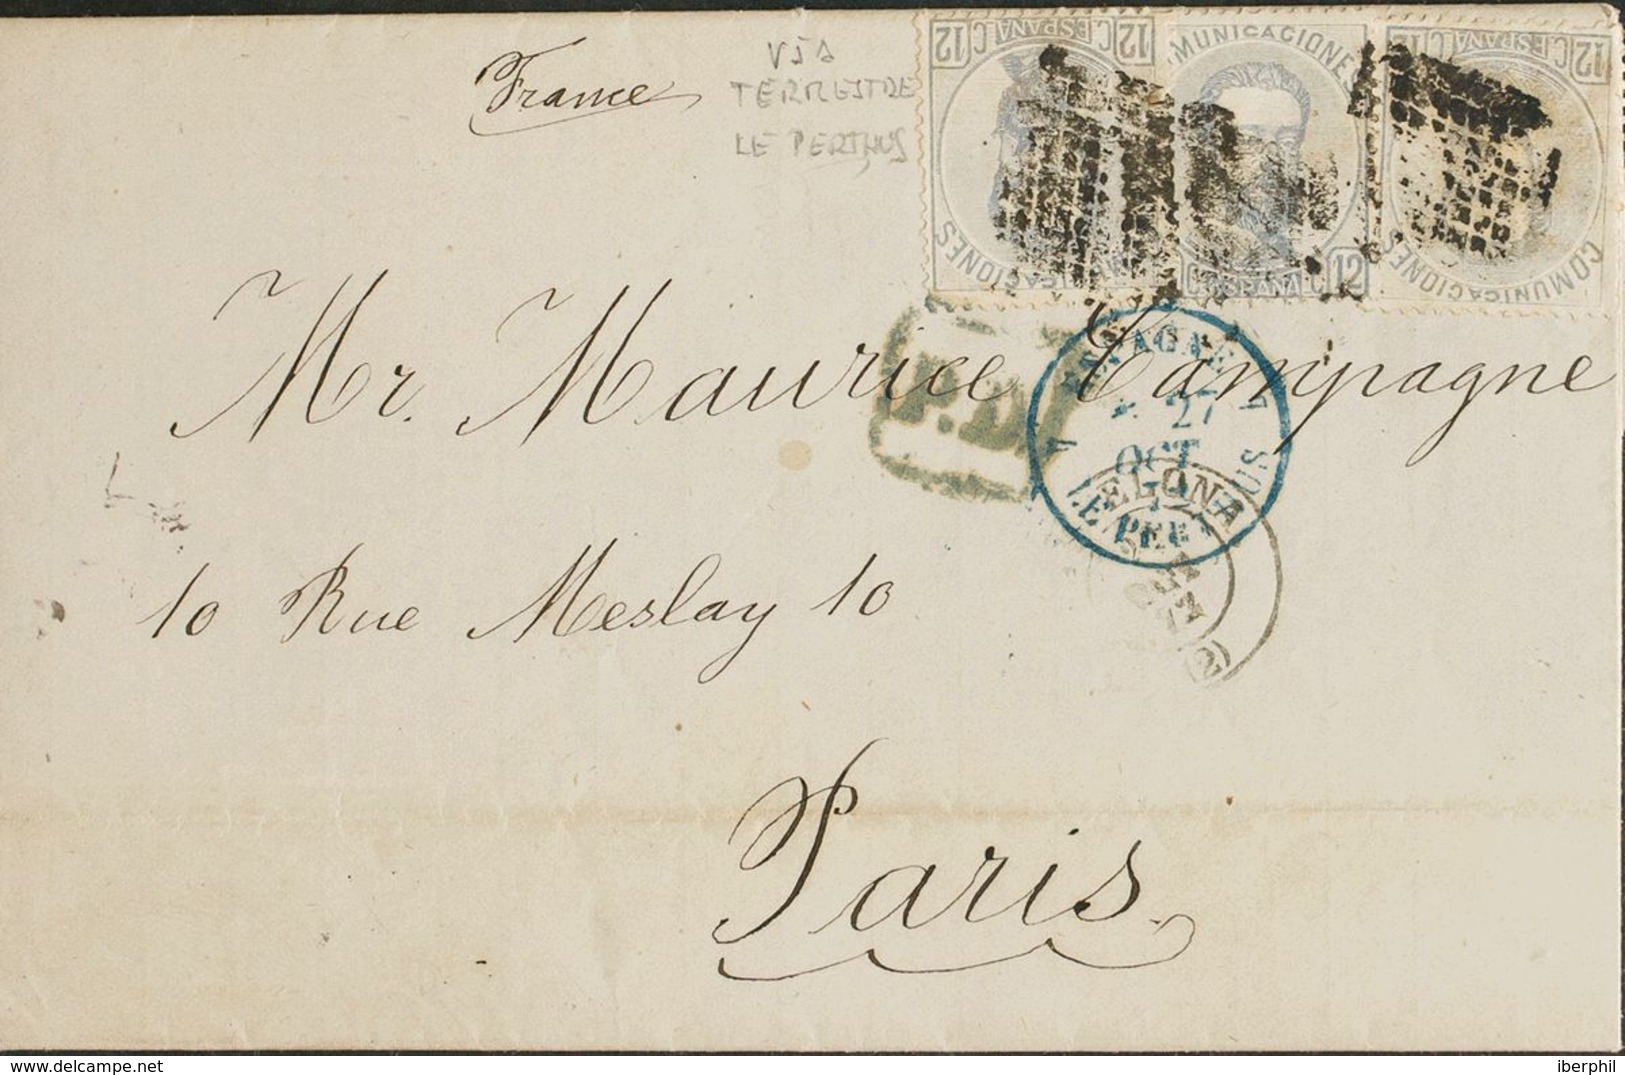 France
VIA
TERRESTRE
LE PERTHUS
12 C. ESPAÑA C. 12
COMUNICACIONES
MUNICACIONES
C. ESPAÑA C. 12
12 C. ESPAÑA C. 12
COMUNICACIONES
P.D.
ESPAGNE
27
OCT
LE PERT
ELONA
(2)
Mr. Maurice Campagne
10 Rue Meslay 10
Paris
delcampe.net
iberphil